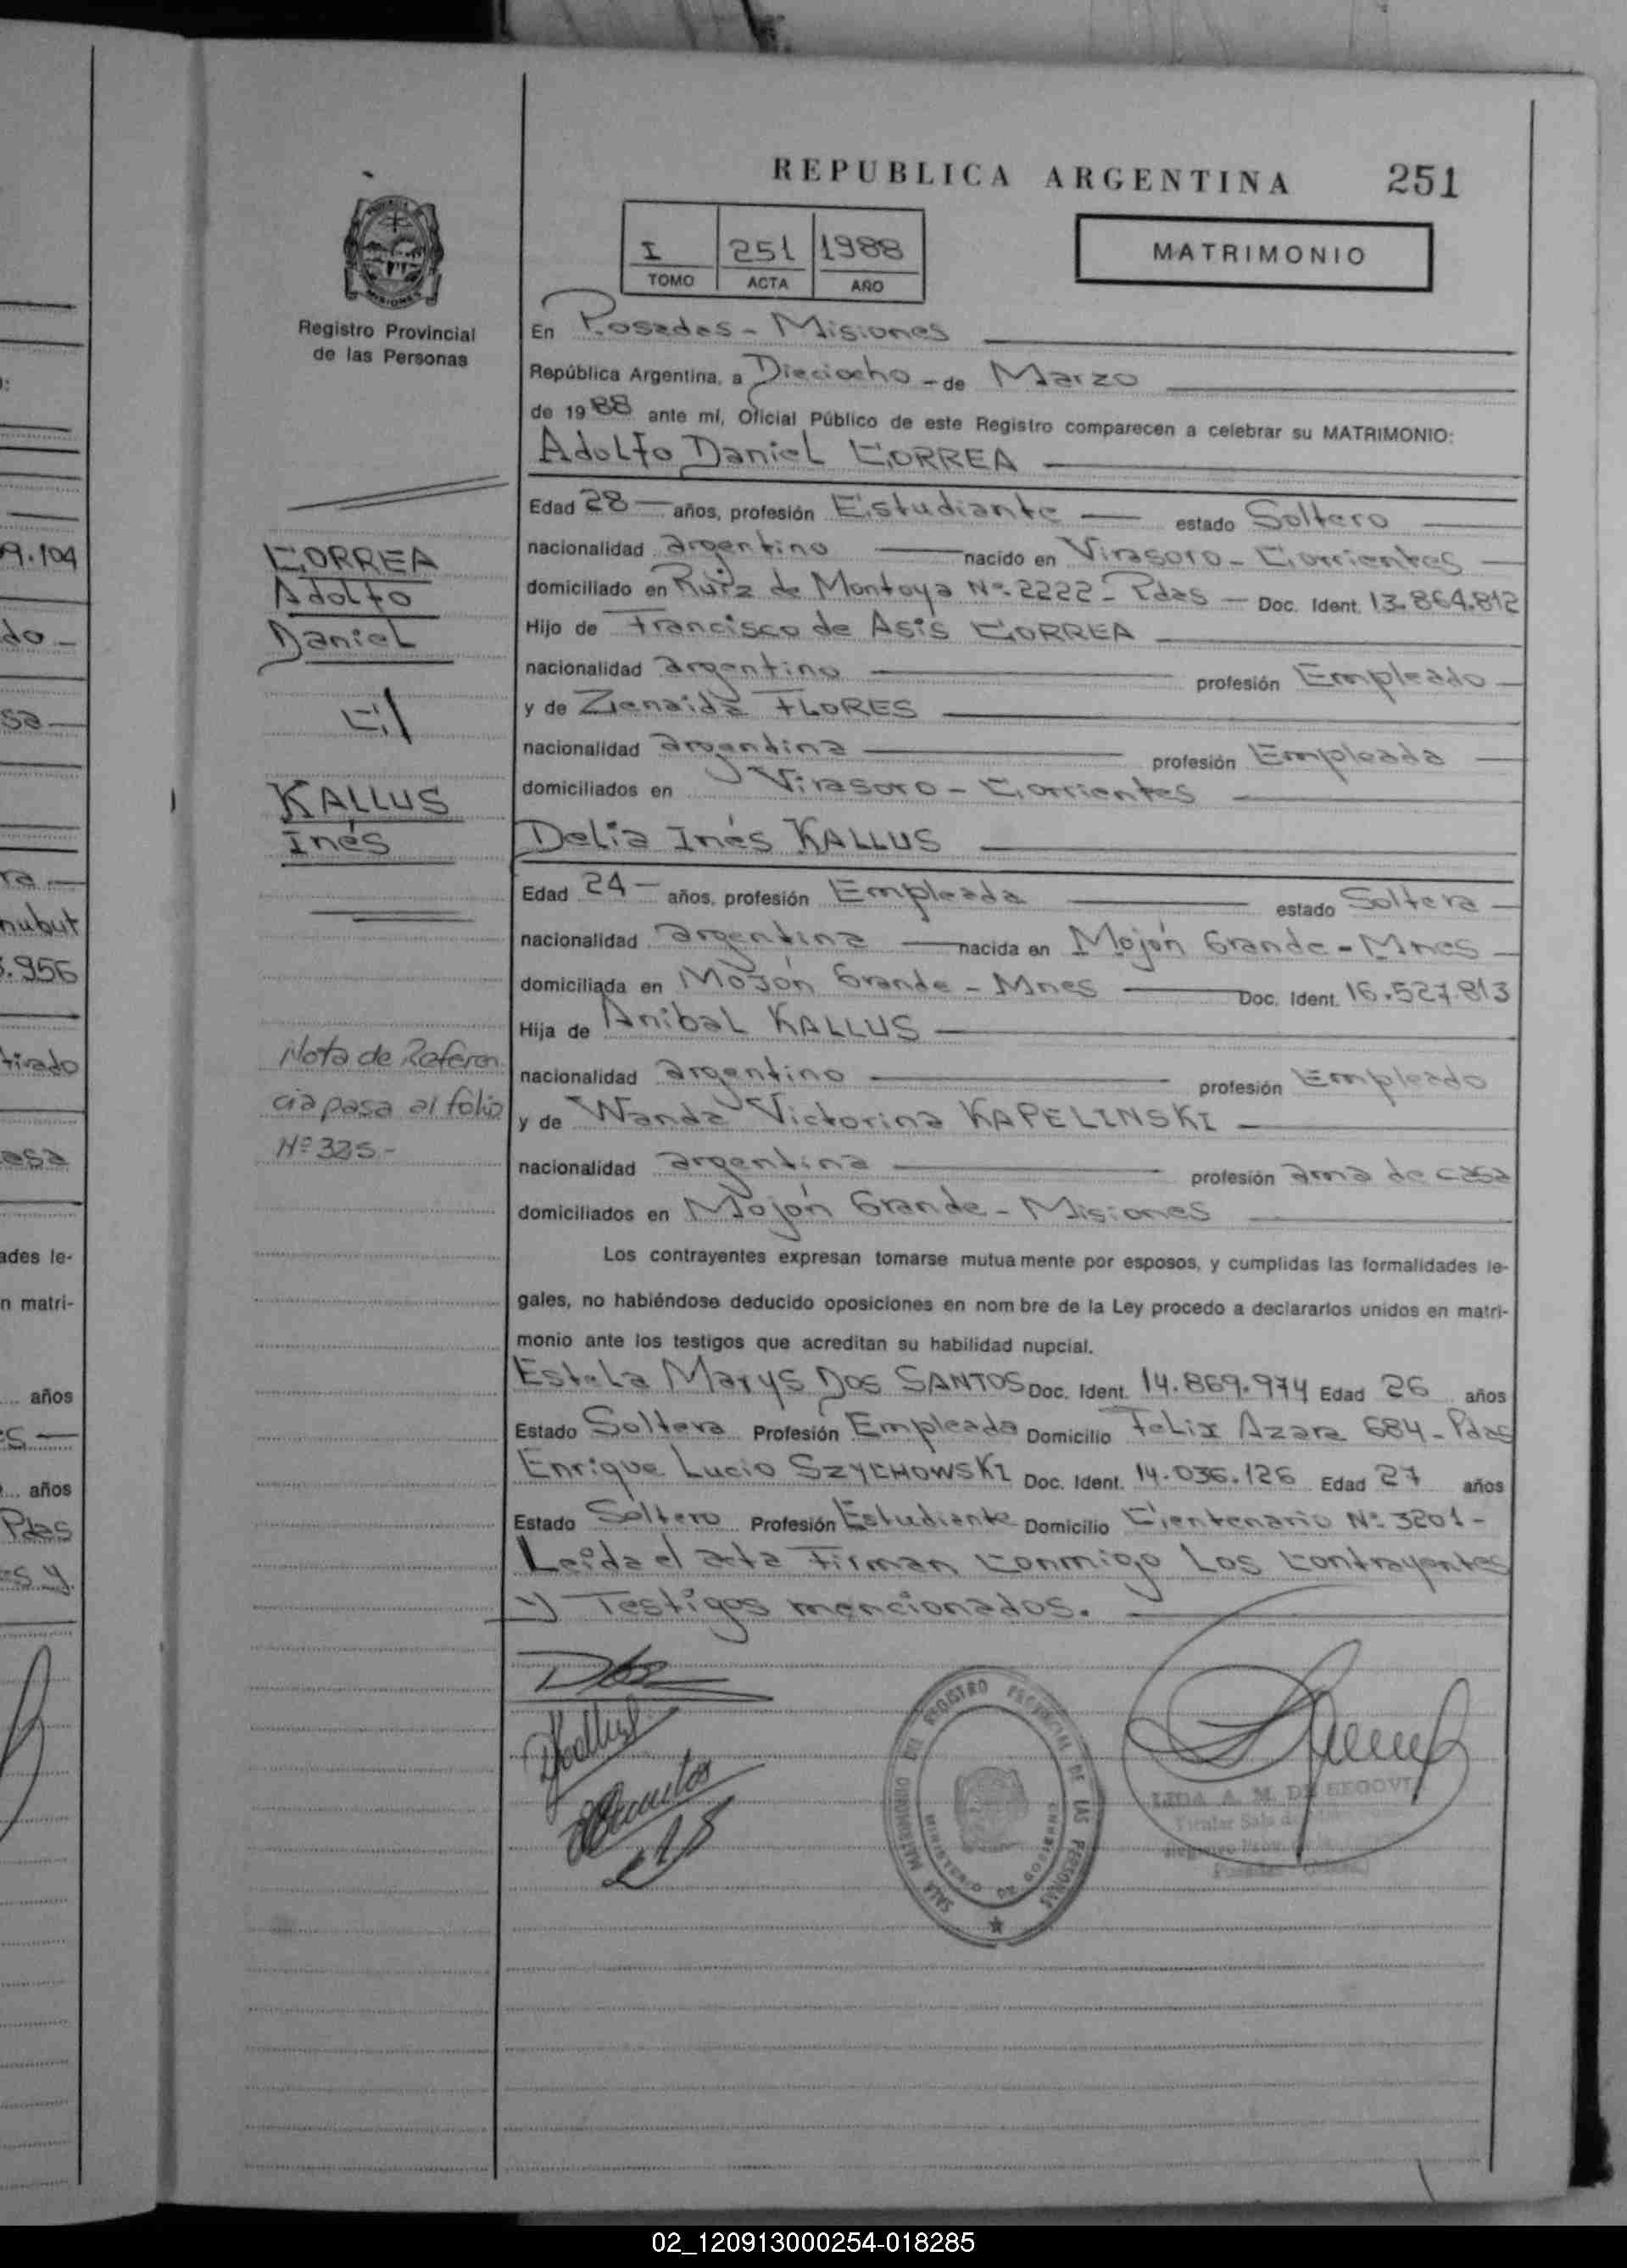 REPUBLICA ARGENTINA 251
I 251 1988
TOMO ACTA AÑO
MATRIMONIO
Registro Provincial
de las Personas
En Posadas - Misiones
República Argentina, a Dieciocho - de Marzo
de 1988 ante mí, Oficial Público de este Registro comparecen a celebrar su MATRIMONIO:
Adolfo Daniel CORREA
Edad 28 años, profesión Estudiante estado Soltero
nacionalidad argentino nacido en Virasoro - Corrientes
domiciliado en Ruiz de Montoya Nº 2222 - Pdas - Doc. Ident. 13.864.812
Hijo de Francisco de Asis CORREA
nacionalidad argentino profesión Empleado
y de Zenaida FLORES
nacionalidad argentina profesión Empleada
domiciliados en Virasoro - Corrientes
Delia Inés KALLUS
Edad 24 años, profesión Empleada estado Soltera
nacionalidad argentina nacida en Mojón Grande - Mnes
domiciliada en Mojón Grande - Mnes Doc. Ident. 16.527.813
Hija de Anibal KALLUS
nacionalidad argentino profesión Empleado
y de Wanda Victorina KAPELINSKI
nacionalidad argentina profesión ama de casa
domiciliados en Mojón Grande - Misiones
Los contrayentes expresan tomarse mutuamente por esposos, y cumplidas las formalidades le-
gales, no habiéndose deducido oposiciones en nombre de la Ley procedo a declararlos unidos en matri-
monio ante los testigos que acreditan su habilidad nupcial.
Estela Marys DOS SANTOS Doc. Ident. 14.869.974 Edad 26 años
Estado Soltera Profesión Empleada Domicilio Felix Azara 684 - Pdas
Enrique Lucio SZYCHOWSKI Doc. Ident. 14.036.126 Edad 27 años
Estado Soltero Profesión Estudiante Domicilio Centenario Nº 3201 -
Leida el acta Firman conmigo Los contrayentes
y Testigos mencionados.
CORREA
Adolfo
Daniel
C/
KALLUS
Inés
Nota de Referen
cia pasa al folio
Nº 325.-
SALA MATRIMONIO DEL REGISTRO PROVINCIAL DE LAS PERSONAS
MINISTERIO DE GOBIERNO
A. M. DE SEGOVIA
Titular Sala
9.104
do -
sa
ra
hubut
.956
tirado
asa
ades le-
n matri-
años
años
Pdas
es y
02_120913000254-018285